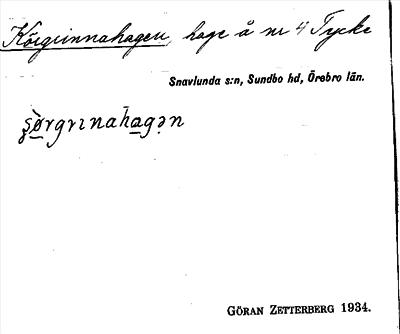 Körgrinnahagen, hage å nr 4 Tycke
Snavlunda s:n, Sundbo hd, Örebro län.
GÖRAN ZETTERBERG 1934.